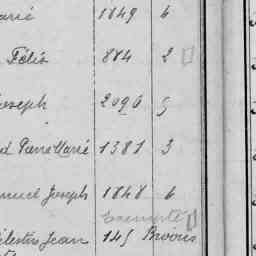 arié 1849 6
Félix 884 2
Joseph 2090 5
Pierre Marié 1381 3
muel Joseph 1848 6
Exempté
élestin Jean 145 Broons